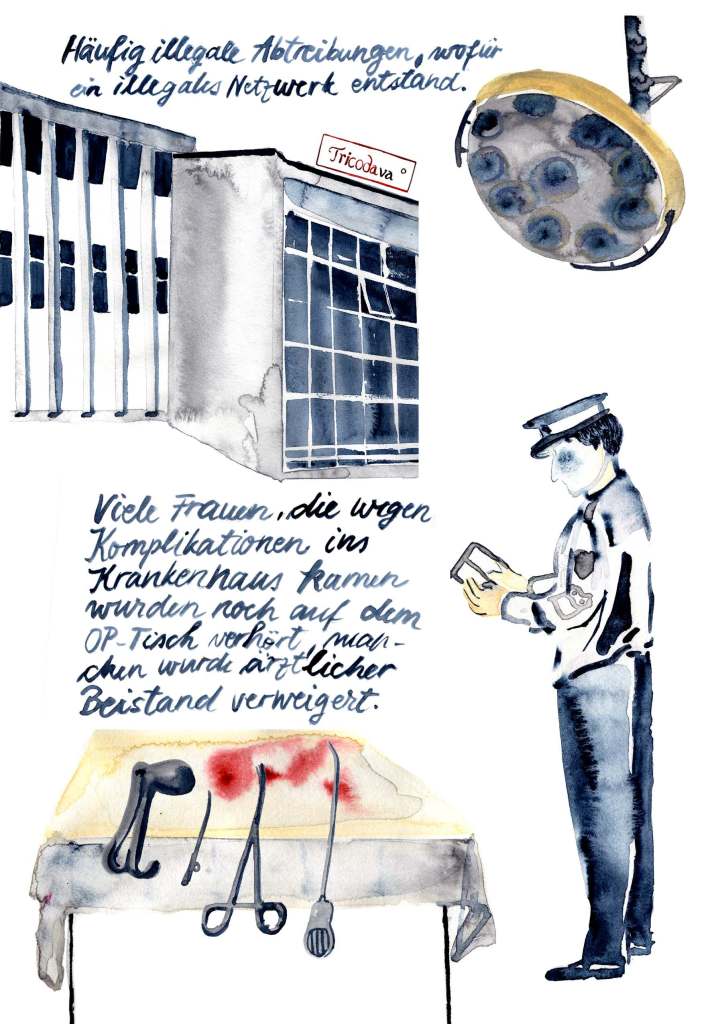 Häufig illegale Abtreibungen, wofür
ein illegales Netzwerk entstand.
Tricodava
Viele Frauen, die wegen
Komplikationen ins
Krankenhaus kamen
wurden noch auf dem
OP-Tisch verhört, man-
chen wurde ärztlicher
Beistand verweigert.